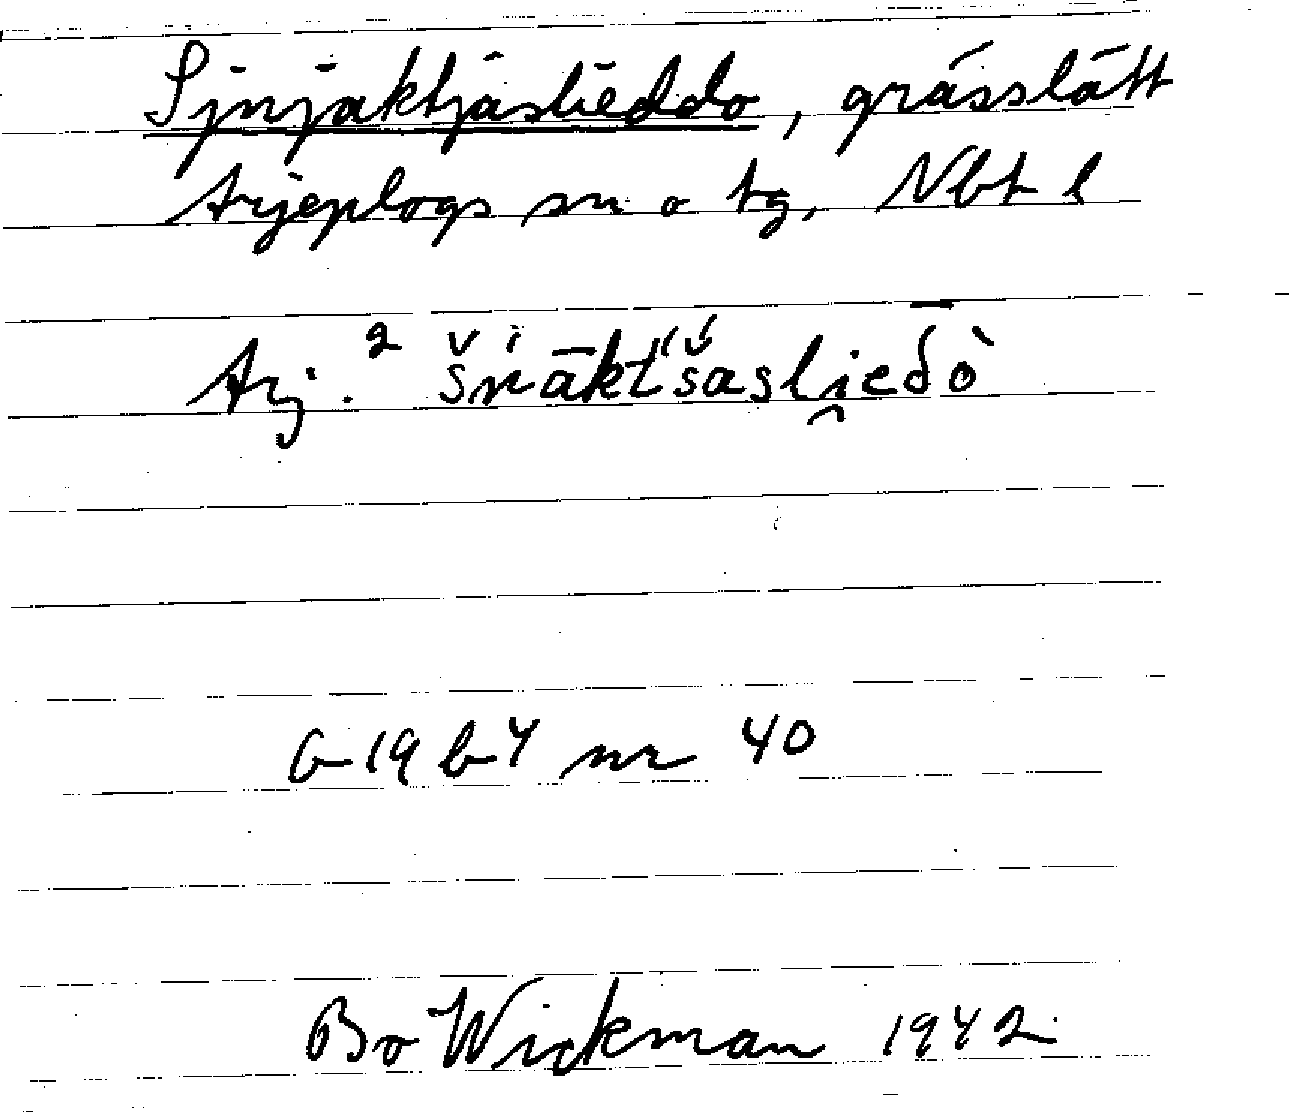 Sjnjaktjaslieddo, grässlått
Arjeplogs sn o tg, Nbt l
Arj.² šńāktšasli̯eδò
G 19 b 4 nr 40
Bo Wickman 1942